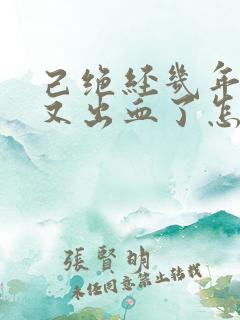 已绝经几年
又出血了怎
張賢明
未经同意禁止转载